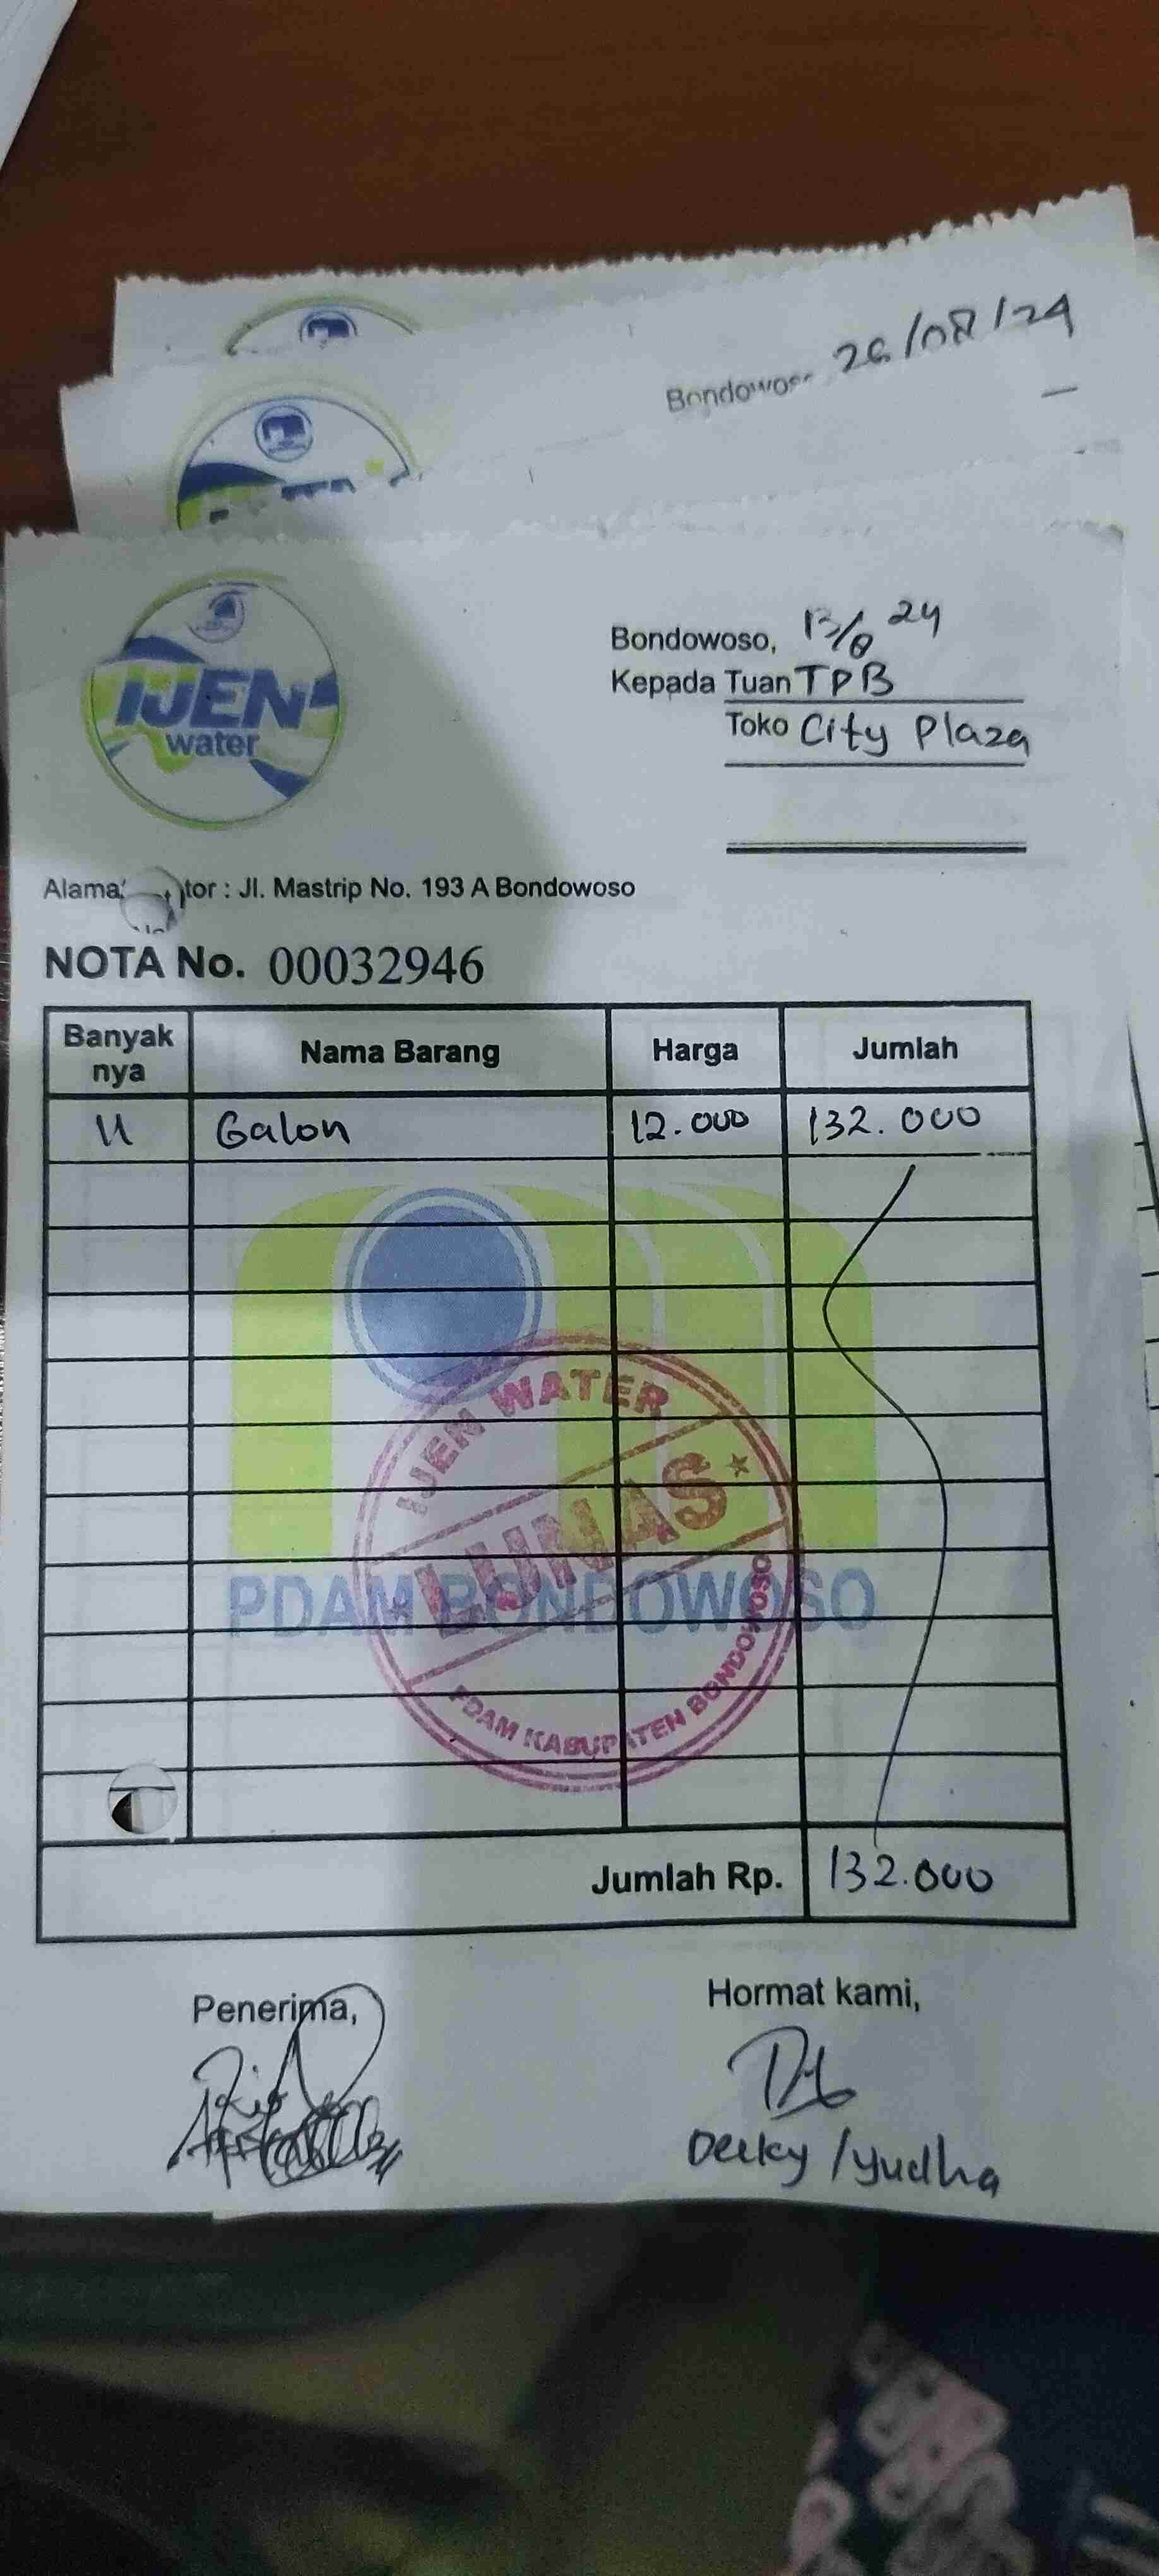 Bondowoso 26/08/24
IJEN
water
Bondowoso, 13/8 24
Kepada Tuan TPB
Toko City Plaza
Alamat tor : Jl. Mastrip No. 193 A Bondowoso
NOTA No. 00032946
Banyak nya Nama Barang Harga Jumlah
11 Galon 12.000 132.000
IJEN WATER
LUNAS
PDAM BONDOWOSO
PDAM KABUPATEN BONDOWOSO
Jumlah Rp. 132.000
Penerima, Hormat kami,
Decky / Yudha